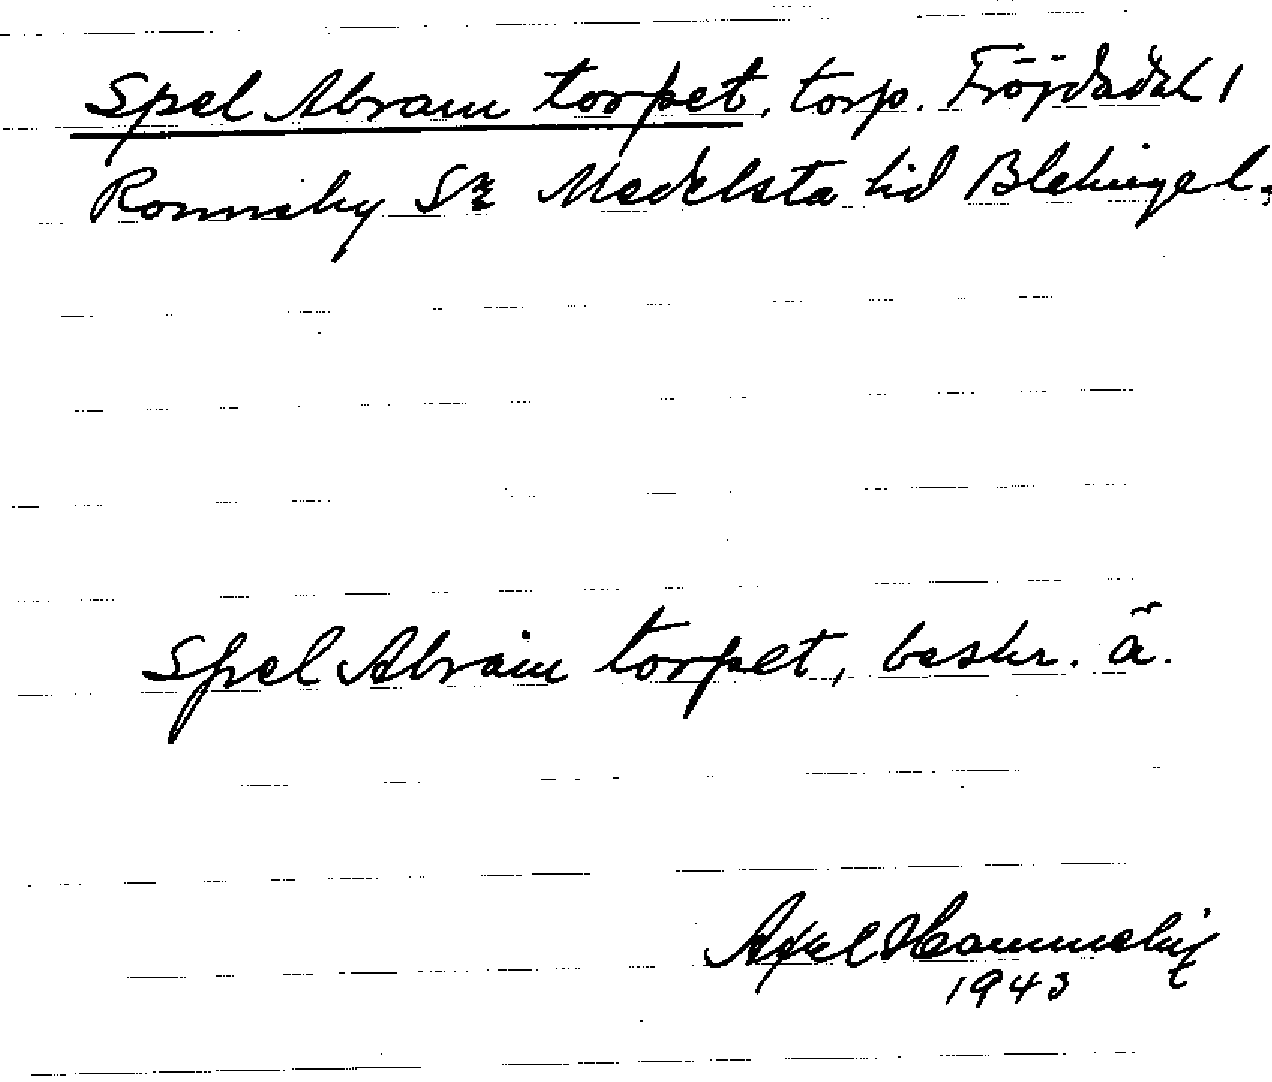 Spel Abram torpet, torp. Fröjdadal 1
Ronneby Sn Medelsta hd Blekinge l.
Spel Abram torpet, beskr. å.
Axel
1943